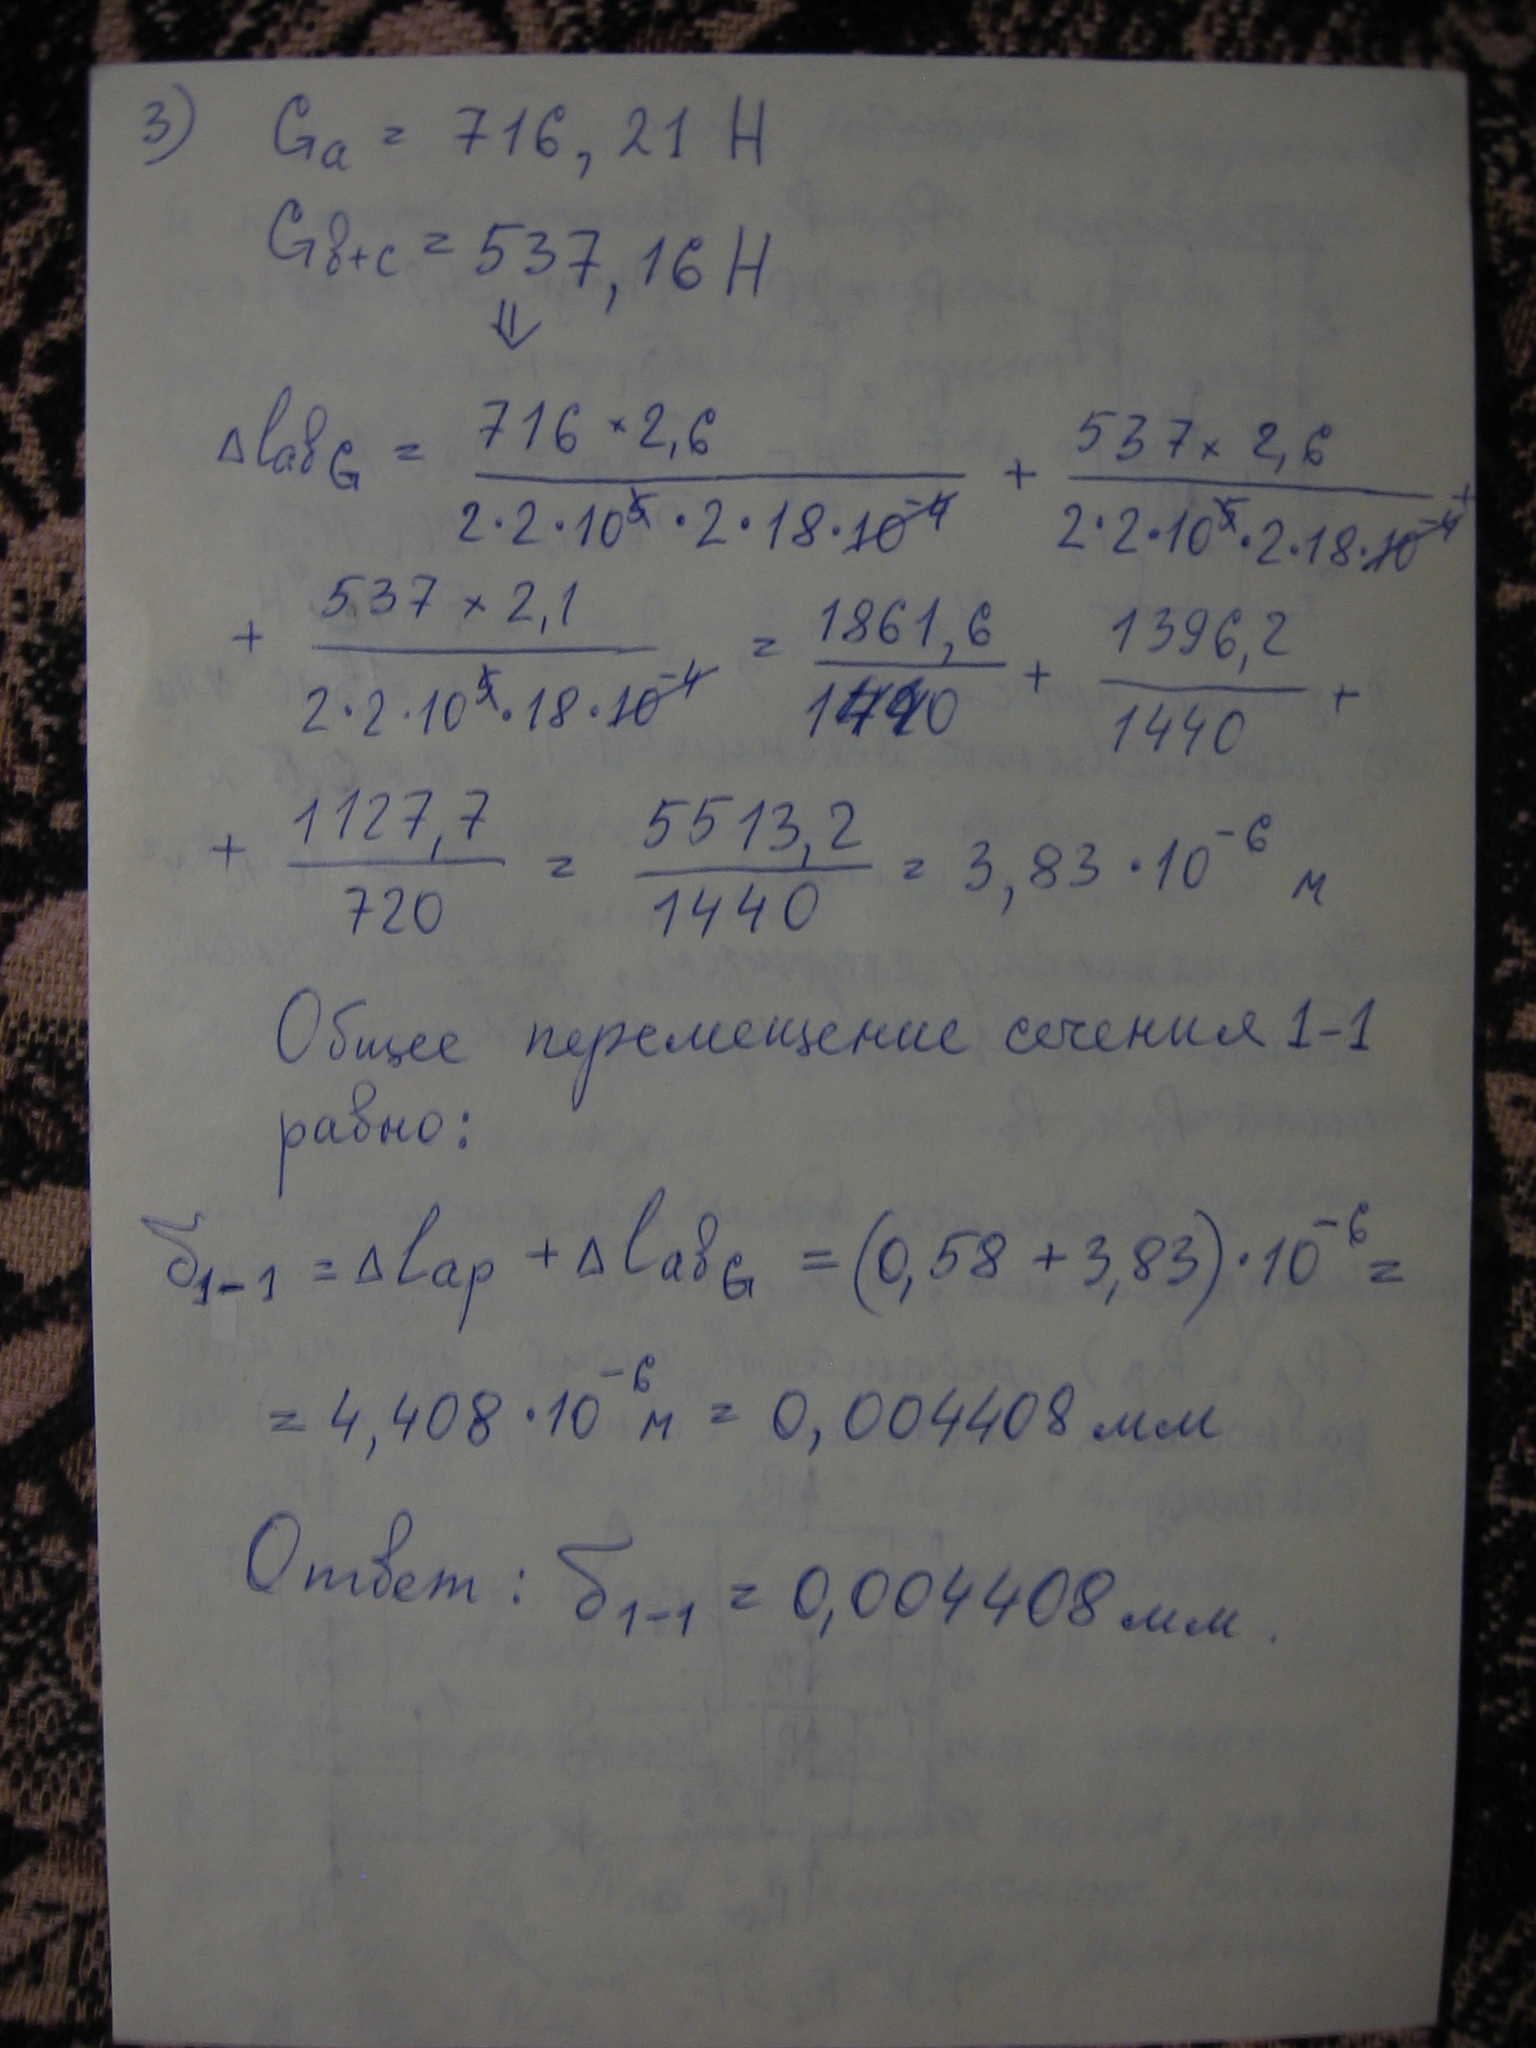 3) Ga = 716,21 Н
Gв+c = 537,16 Н
⇓
ΔlавG = 716 × 2,6 / 2·2·10⁵·2·18·10⁻⁴ + 537 × 2,6 / 2·2·10⁵·2·18·10⁻⁴ +
+ 537 × 2,1 / 2·2·10⁵·18·10⁻⁴ = 1861,6 / 1440 + 1396,2 / 1440 +
+ 1127,7 / 720 = 5513,2 / 1440 = 3,83·10⁻⁶ м
Общее перемещение сечения 1-1
равно:
δ1-1 = Δlap + ΔlавG = (0,58 + 3,83)·10⁻⁶ =
= 4,408·10⁻⁶ м = 0,004408 мм
Ответ: δ1-1 = 0,004408 мм.